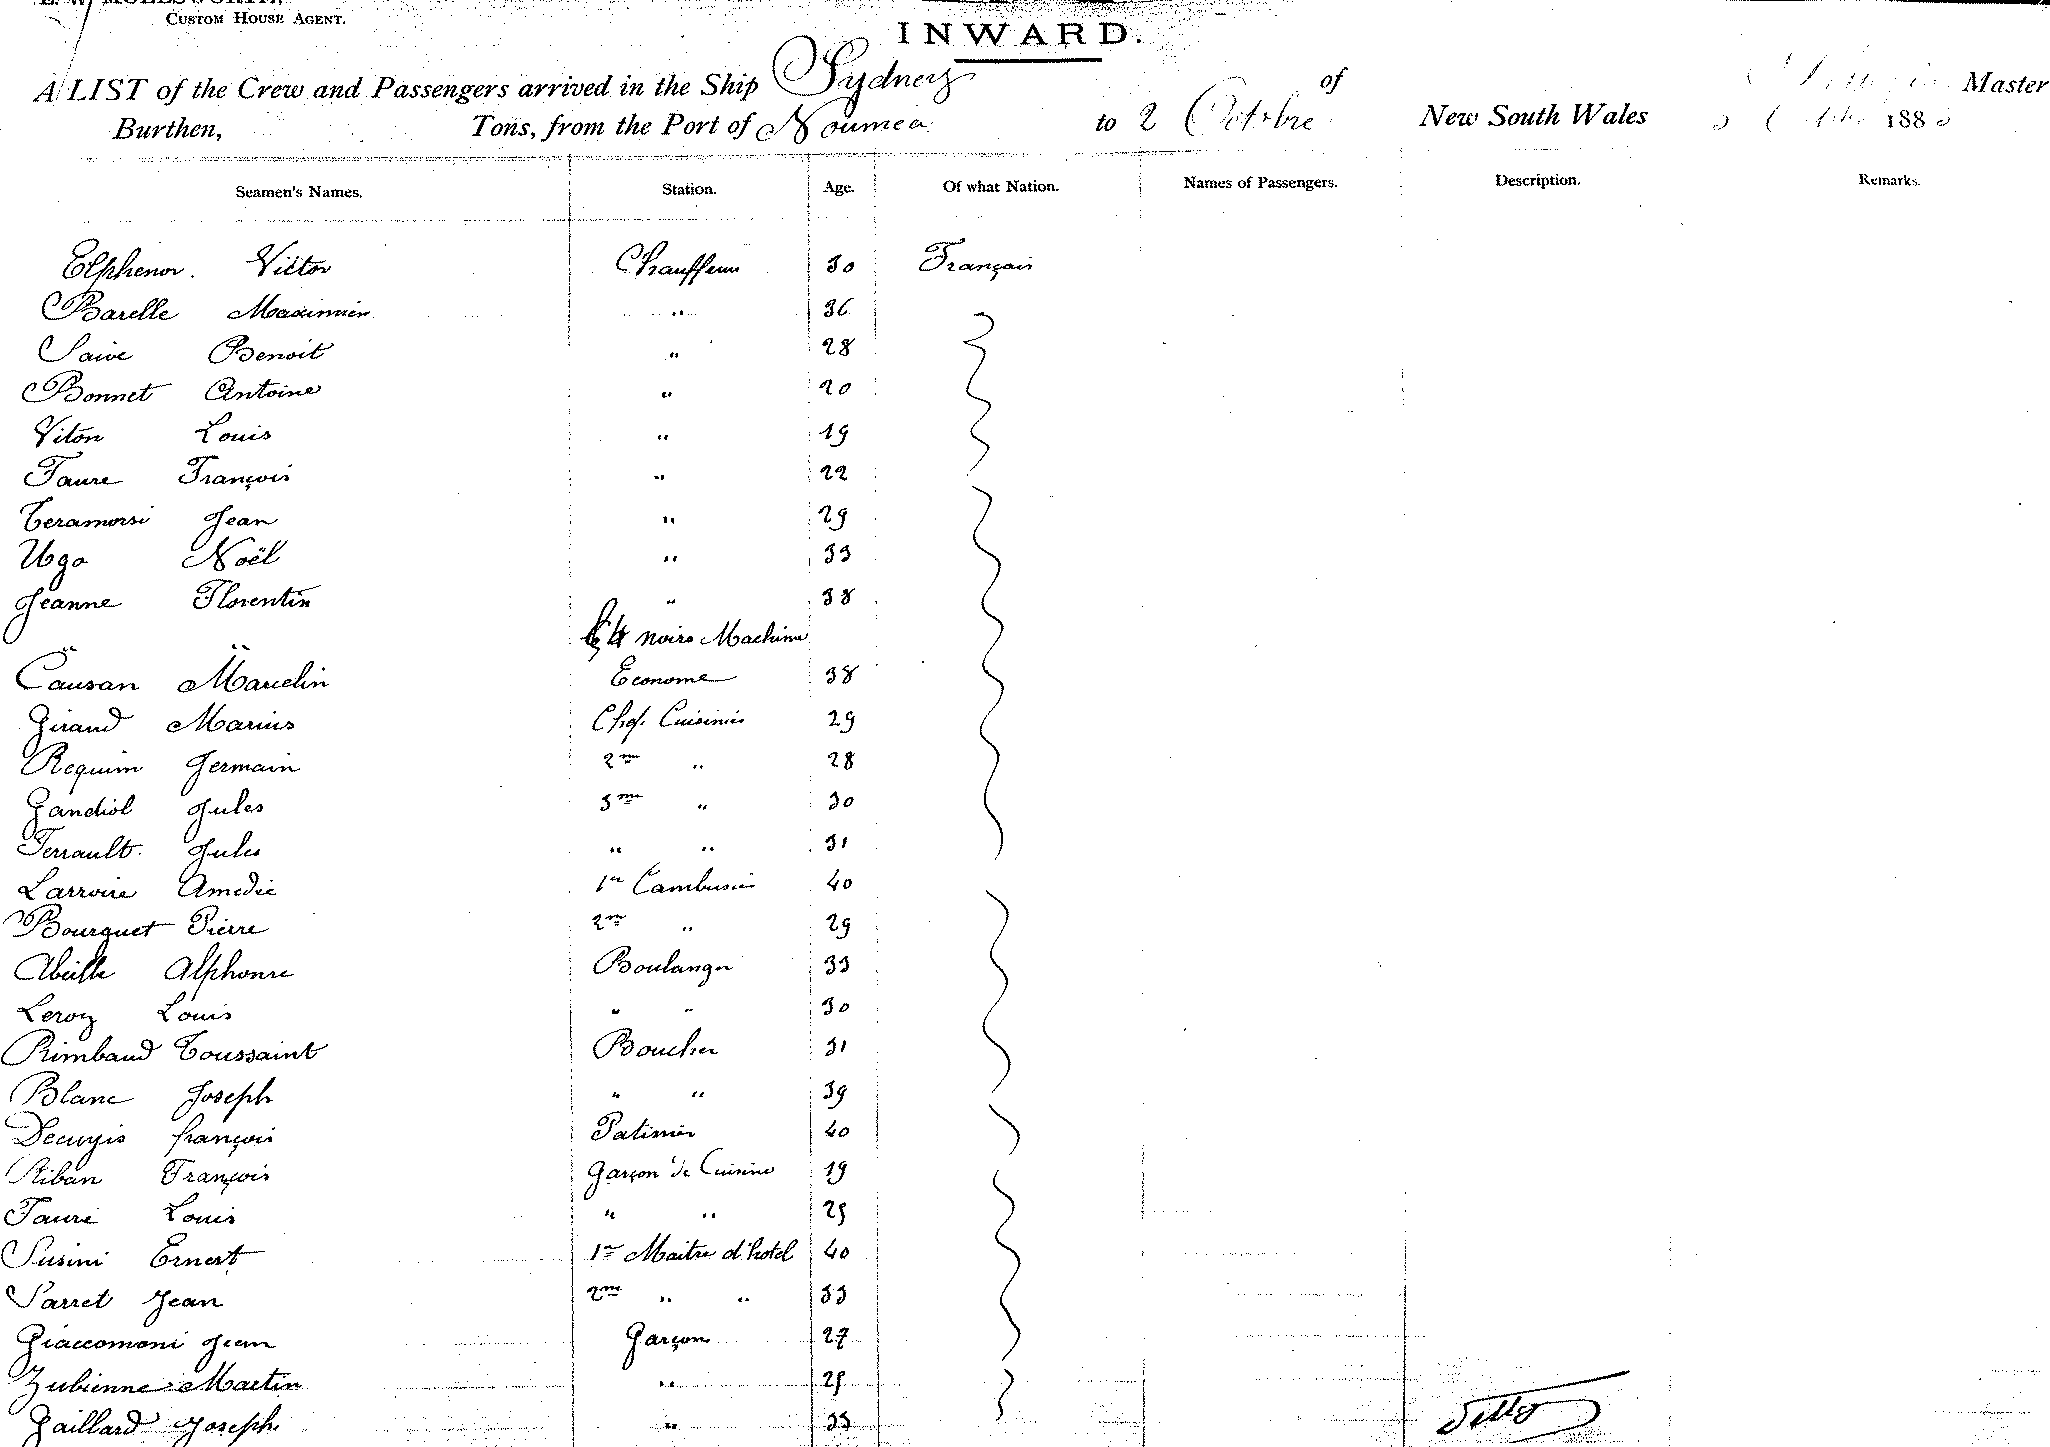 CUSTOM HOUSE AGENT.
INWARD.
A LIST of the Crew and Passengers arrived in the Ship Sydney of Master
Burthen, Tons, from the Port of Noumea to 2 Octobre New South Wales 188
Seamen's Names. Station. Age. Of what Nation. Names of Passengers. Description. Remarks.
Elphenor. Victor Chauffeur 30 Français
Barelle Maximien " 36
Saive Benoit " 28
Bonnet Antoine " 20
Viton Louis " 19
Faure François " 22
Teramorsi Jean " 29
Ugo Noël " 33
Jeanne Florentin " 38
noirs Machine
Causan Marcelin Econome 38
Giraud Marius Chef Cuisinier 29
Requim Germain 2me " 28
Gandiol Jules 3me " 30
Ferrault Jules " " 31
Larroire Amedée 1er Cambusier 40
Bourguet Pierre 2me " 29
Abeille Alphonse Boulanger 33
Leroy Louis " " 30
Rimbaud Toussaint Boucher 31
Blanc Joseph " " 39
Decugis françois Patissier 40
Riban François Garçon de Cuisine 19
Faure Louis " " 25
Susini Ernest 1er Maitre d'hotel 40
Sarret Jean 2me " " 33
Giaccomoni Jean Garçon 27
Zubienne Martin " 25
Gaillard Joseph " 35